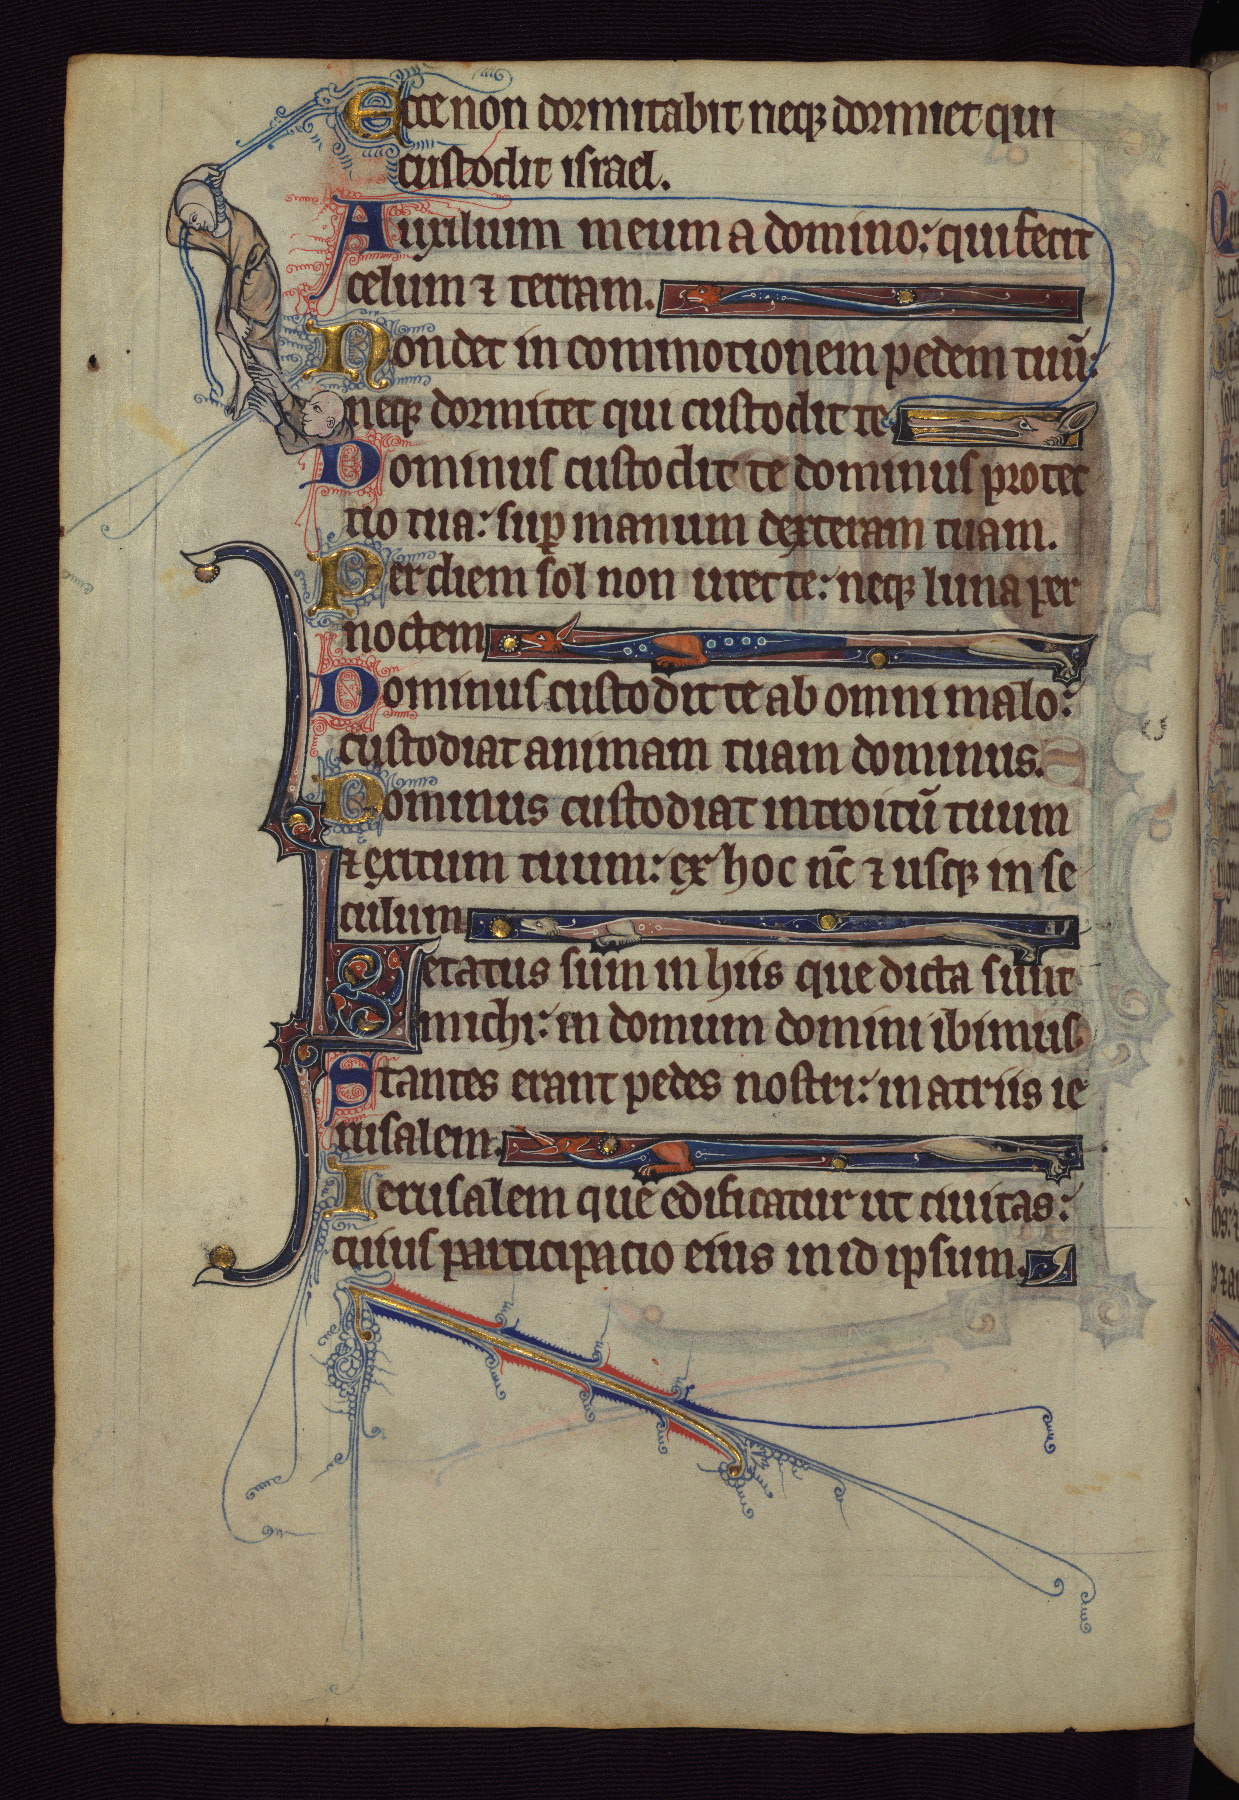 Ecce non dormitabit neqꝫ dormiet qui
custodit israel.
Auxilium meum a domino: qui fecit
celum ⁊ terram.
Non det in commotionem pedem tuū:
neqꝫ dormitet qui custodit te
Dominus custodit te dominus protec
tio tua: suꝑ manum dexteram tuam.
Per diem sol non uret te: neqꝫ luna per
noctem
Dominus custodit te ab omni malo:
custodiat animam tuam dominus.
Dominus custodiat introitū tuum
⁊ exitum tuum: ex hoc nc̄ ⁊ usqꝫ in se
culum
Letatus sum in hiis que dicta sunt
michi: in domum domini ibimus
Stantes erant pedes nostri: in atriis ie
rusalem.
Ierusalem que edificatur ut ciuitas:
cuius participacio eius in id ipsum.